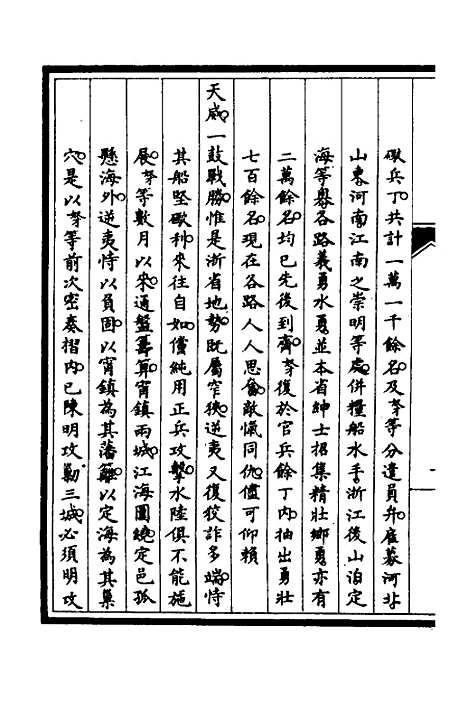 礮兵丁共計一萬一千餘名及孥等分遣員弁雇募河北
山東河南江南之崇明等處併糧船水手浙江後山泊定
海等嶴各路義勇水勇並本省紳士招集精壯鄉勇亦有
二萬餘名均已先後到齊孥復於官兵餘丁內抽出勇壯
七百餘名現在各路人人思奮敵愾同仇儘可仰賴
天威一鼓戰勝惟是浙省地勢既屬窄狹逆夷又復狡詐多端恃
其船堅礮利來往自如僅純用正兵攻擊水陸俱不能施
展孥等數月以來通盤籌算甯鎮兩城江海圍繞定邑孤
懸海外逆夷恃以負固以甯鎮為其藩籬以定海為其巢
穴是以孥等前次密奏摺內已陳明攻勦三城必須明攻